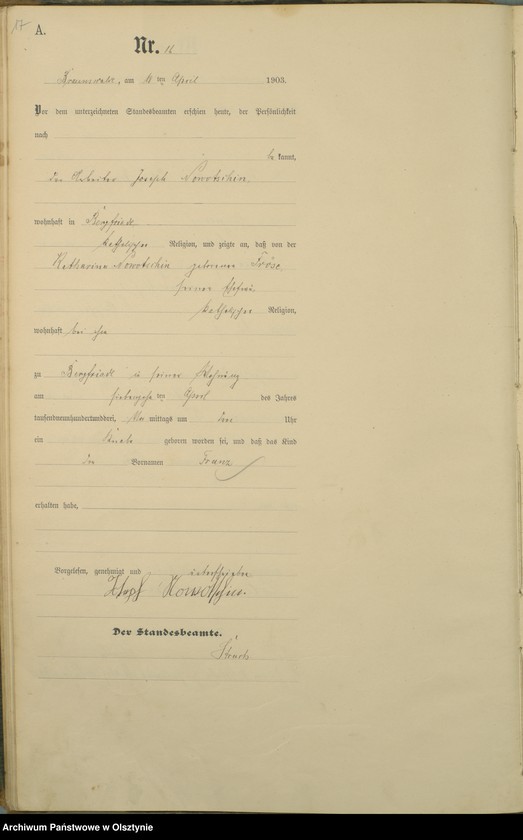 17
A.
Nr.
am ten April 1903.
Vor dem unterzeichneten Standesbeamten erschien heute, der Persönlichkeit
nach
be kannt,
der Arbeiter Joseph Nowotschin
wohnhaft in Bergfriede
katholischer Religion, und zeigte an, daß von der
Katharina Nowotschin geborenen
seiner Ehefrau,
katholischer Religion,
wohnhaft bei ihm
zu Bergfriede in seiner Wohnung
am ten April des Jahres
tausendneunhundertunddrei, mittags um Uhr
ein Knabe geboren worden sei, und daß das Kind
den Vornamen Franz
erhalten habe,
Vorgelesen, genehmigt und unterschrieben
Der Standesbeamte.
Archiwum Państwowe w Olsztynie